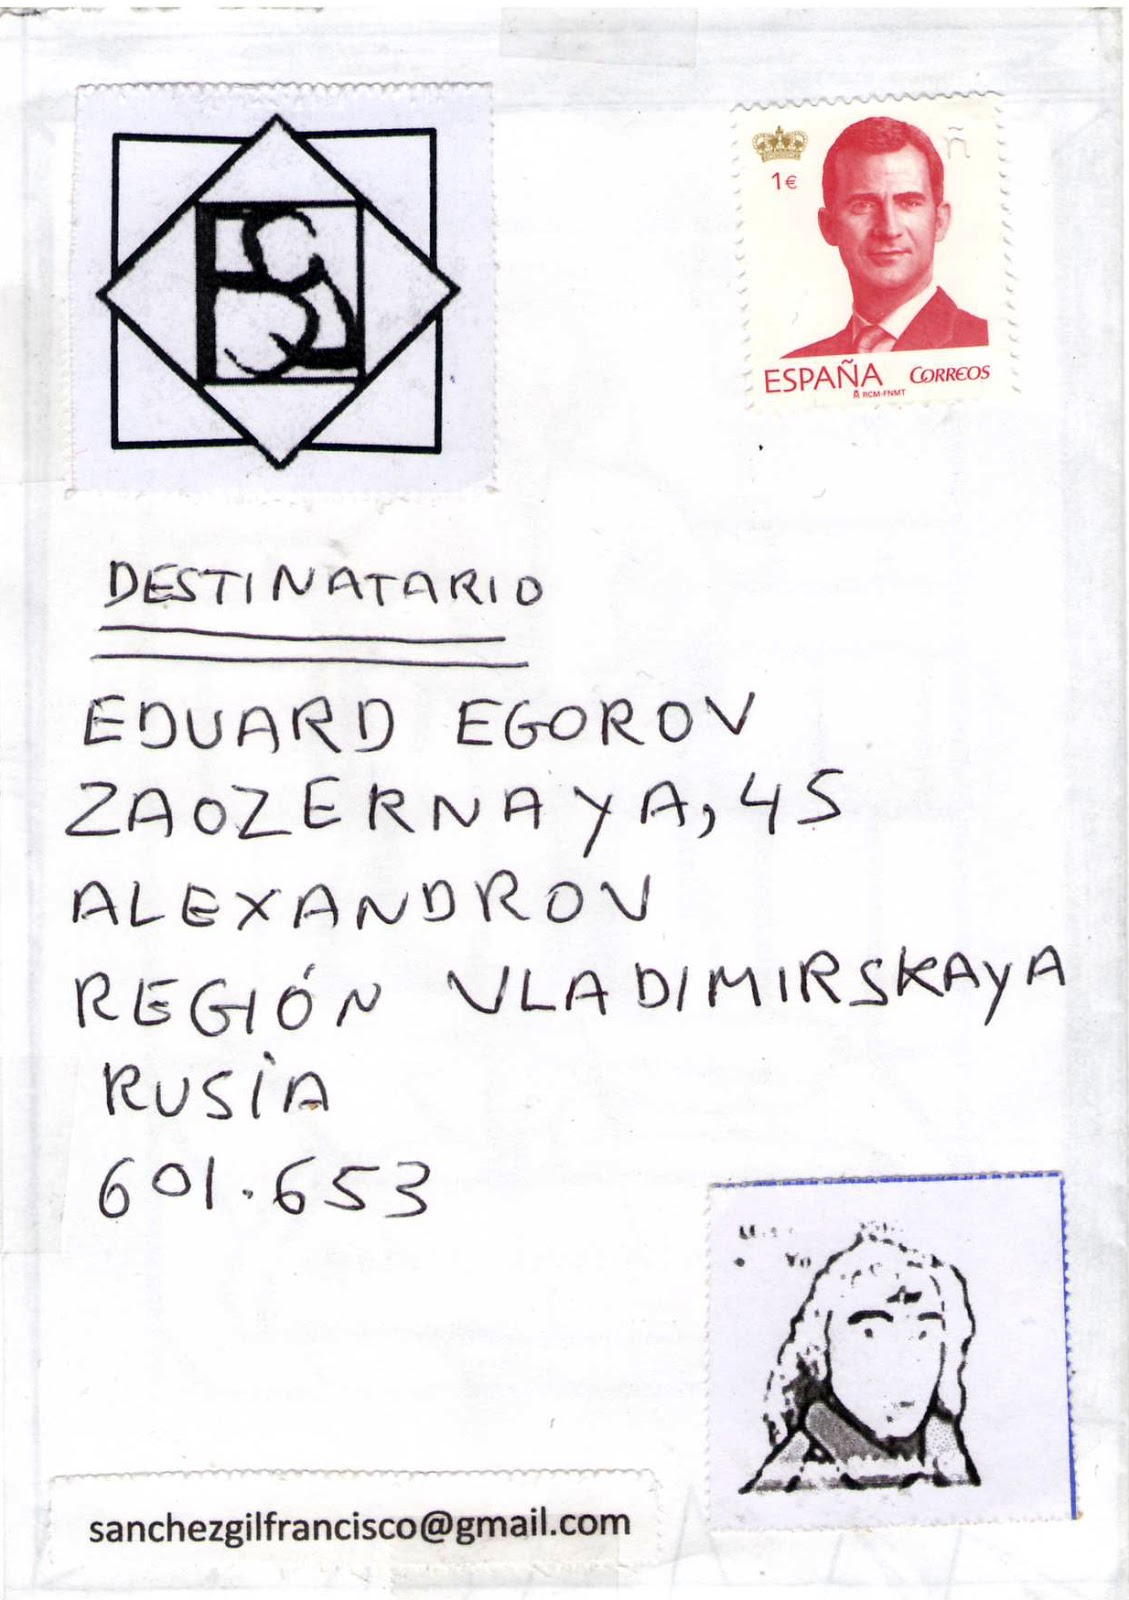 1€
ñ
ESPAÑA CORREOS
RCM-FNMT
DESTINATARIO
EDUARD EGOROV
ZAOZERNAYA, 45
ALEXANDROV
REGIÓN VLADIMIRSKAYA
RUSÍA
601.653
Yo
sanchezgilfrancisco@gmail.com